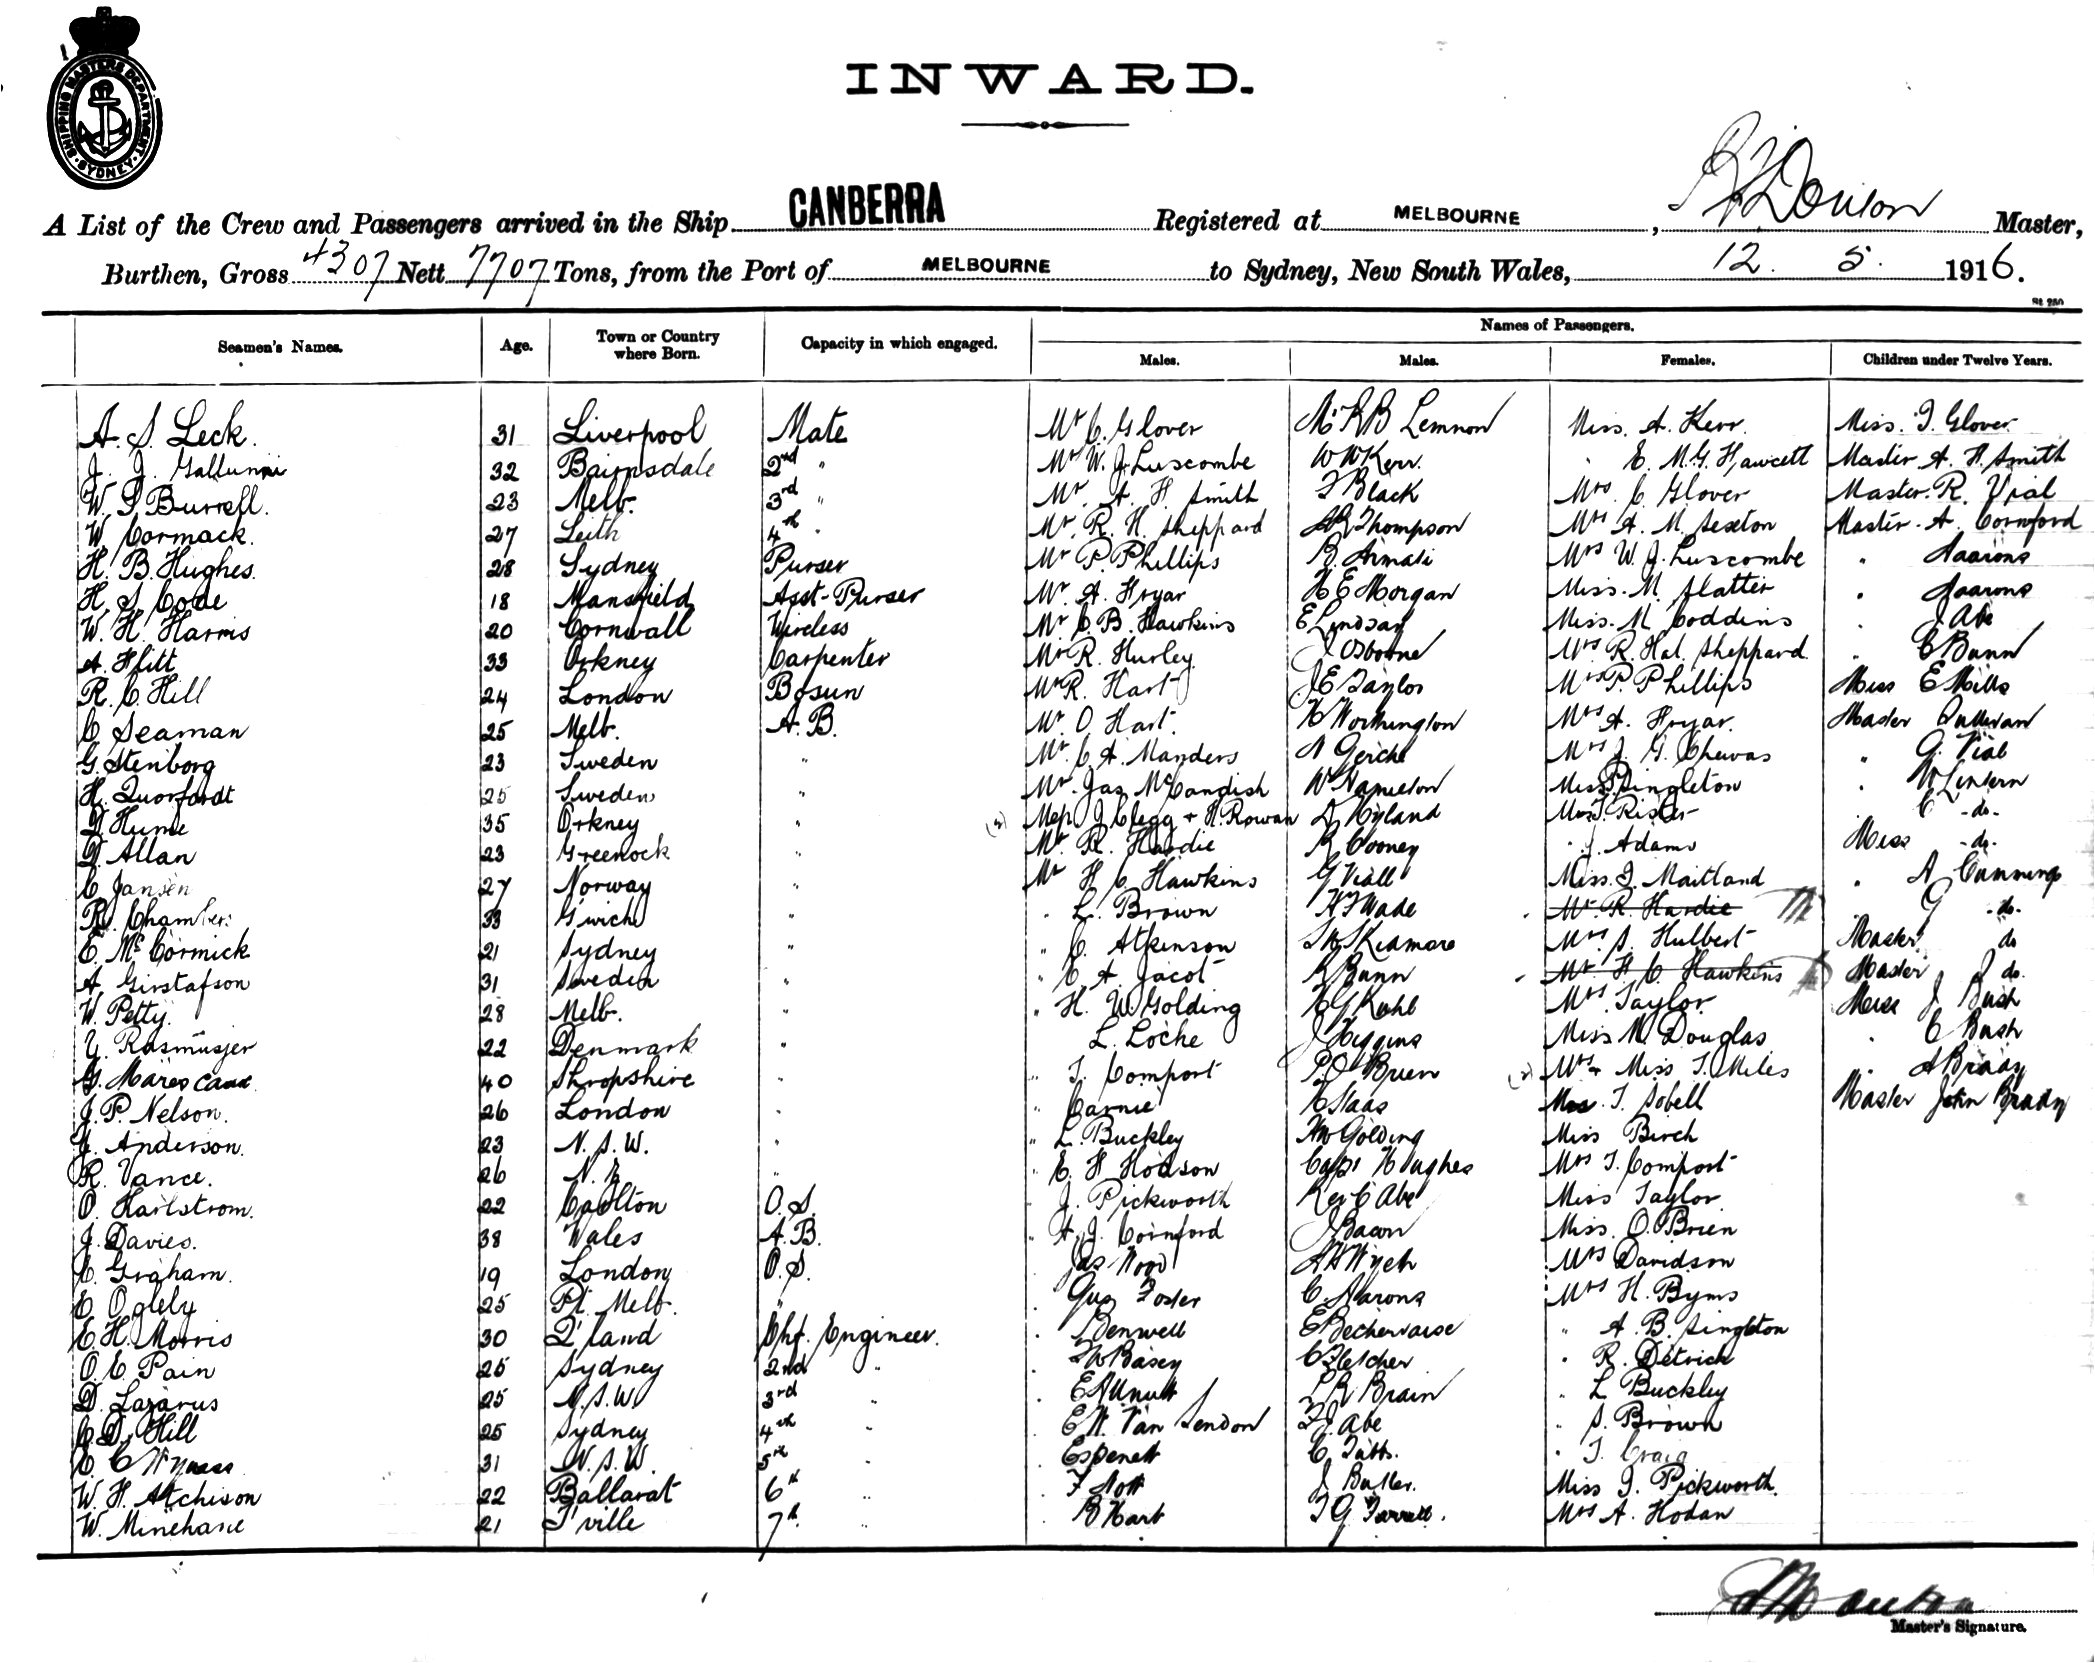 SHIPPING MASTERS DEPARTMENT. SYDNEY
INWARD.
A List of the Crew and Passengers arrived in the Ship CANBERRA Registered at MELBOURNE, Master,
Burthen, Gross 4307 Nett 7707 Tons, from the Port of MELBOURNE to Sydney, New South Wales, 12. 5. 1916.
Names of Passengers.
Seamen's Names. Age. Town or Country where Born. Capacity in which engaged. Males. Males. Females. Children under Twelve Years.
A. S. Leck. 31 Liverpool Mate Mr C. Glover Mr R B Lemnon Miss. A. Kerr. Miss. I. Glover
J. J. 32 Bairnsdale 2nd " Mr W. J. Luscombe W W Kerr. " E. M. G. Fawcett Master A. H. Smith
W. Burrell. 23 Melb. 3rd " Mr. A. H. Smith Black Mrs. C. Glover Master. R. Vial
W. Cormack. 27 Leith 4th " Mr. R. H. Sheppard Thompson Mrs A. M. Sexton Master. A. Cornford
H. B. Hughes. 28 Sydney Purser Mr P. Phillips Mrs W. J. Luscombe " Aaarons
H. S. Code 18 Mansfield Asst-Purser Mr. A. Fryar H E Morgan Miss. M. Slatter " Aaarons
W. H. Harris 20 Cornwall Wireless Mr C. B. Hawkins E Lindsay Miss. M. Coddins " J Abe
A. Flitt 33 Orkney Carpenter Mr R. Hurley J Osborne Mrs R. Hal. Sheppard. " C Bunn
R. C. Hill 24 London Bosun Mr R. Hart J E Taylor Mrs P. Phillips Miss E Mills
C Seaman 25 Melb. A. B. Mr. O. Hart. H Worthington Mrs A. Fryar. Master Sullivan
G. Stenborg 23 Sweden " Mr. C. A. Manders Mrs J. G. Chewas " G. Vial
H. Quorfordt 25 Sweden " Mr. Jas McCandish W Hamilton Miss Singleton " W Lintern
D. Hume 35 Orkney " J. Clegg + H. Rowan D Hyland " C -do-
D. Allan 23 Greenock " Mr. R. Hardie R Cooney " J. Adams Miss -do-
C Jansen 27 Norway " Mr H. C. Hawkins G Viall Miss. I. Maitland " A Cummings
R. 33 G'wich " " L. Brown H F Wade Mr. R. Hardie " G -do-
E. McCormick 21 Sydney " " C. Atkinson Skidmore Mrs. S. Hulbert Master. do
A. Girstafson 31 Sweden " " C. A. Jacot Bunn Mr H. C. Hawkins Master J do.
W. Petty. 28 Melb. " " H. W. Golding Mrs. Taylor. Miss J Bush
Y. Rasmusjer 22 Denmark " L. Loche J Higgins Miss M. Douglas " C Bush
G. 40 Shropshire " " T. Comport P. O'Brien (2) Mrs + Miss T. Miles " A Brady
J. P. Nelson. 26 London " " Carnie T. Sobell Master John Brady
J. Anderson. 23 N. S. W. " " L. Buckley Golding Miss Birch
R. Vance. 26 N. Z " " E. H. Hodson Capt Hughes Mrs T. Comport
O. Harlstrom. 22 Carlton O. S. " J. Pickworth Rev C Abe Miss Taylor
J. Davies. 38 Wales A. B. " A. J. Cornford J Bacon Miss. O. Brien
C. Graham. 19 London O. S. " Jas Wood Mrs Davidson
E. Oglely 25 Pt. Melb. " " Gus Foster C. Aarons Mrs H. Byrns
E. H. Morris 30 Q'land Chf. Engineer. " Benwell E Bechervaise " A. B. Singleton
O. E. Pain 25 Sydney 2nd " " Basey C Fletcher " R. Detrich
D. Lazarus 25 N.S.W. 3rd " " E Allnutt Brain " L Buckley
C. D. Hill 25 Sydney 4th " " E. H. Van Sendon F J Abe " S. Brown
C 31 N. S. W. 5th " " Espenett C. Tibbs. " T. Craig
W. H. Atchison 22 Ballarat 6th " " F Nott J Butler. Miss I. Pickworth.
W. Minehane 21 T'ville 7th " " B Hart Mrs A. Hodan
Master's Signature.